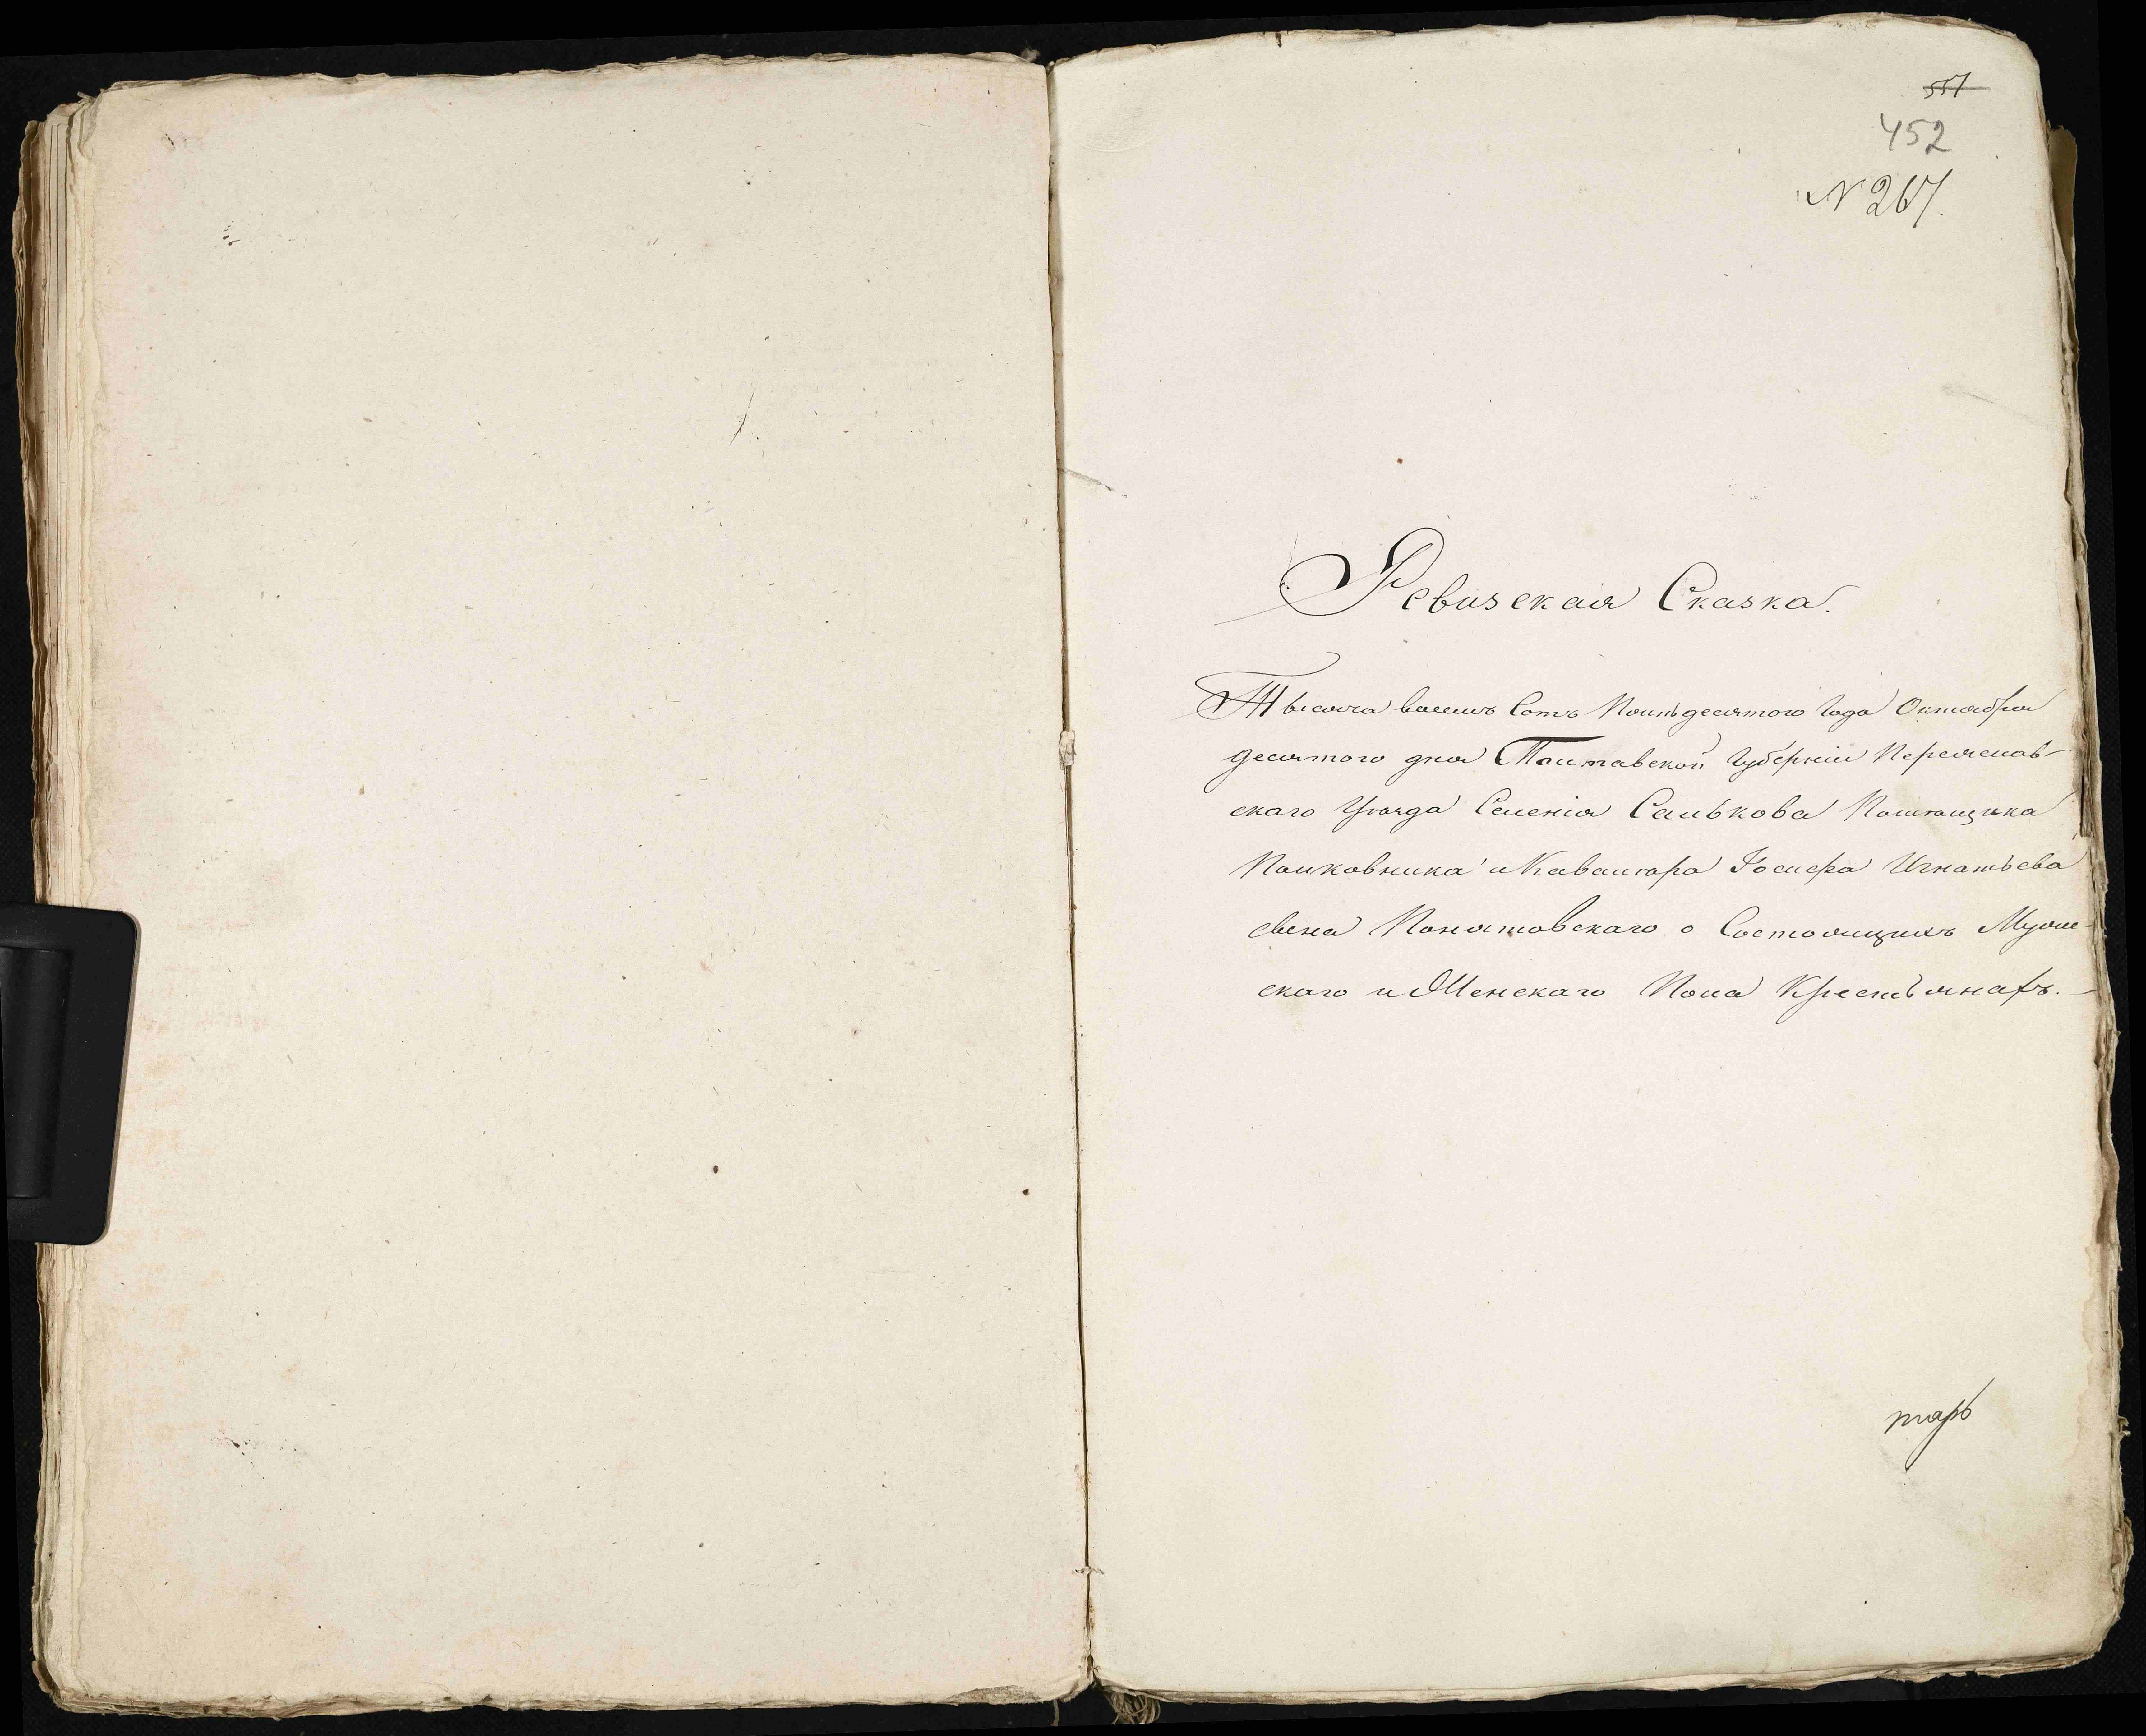 557
452
№ 267.
Ревизская Сказка.
Тысяча восемь Сотъ Пятьдесятого Года Октября
десятого дня Полтавской Губерніи Переяслав-
скаго Уѣзда Селенія Сулькова Помѣщика
Полковника и Кавалера Іосифа Игнатьева
сына Понятовскаго о Состоящихъ Муже-
скаго и Женскаго Пола Крестьянахъ.
тарь